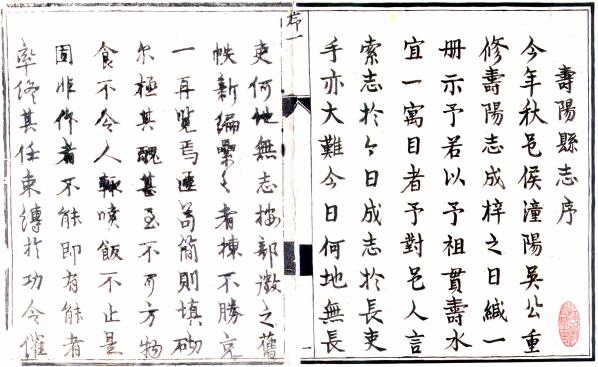 壽陽縣志序
今年秋邑侯潼陽吳公重
修壽陽志成梓之日緘一
册示予若以予祖貫壽水
宜一寓目者予對邑人言
索志於今日成志於長吏
手亦大難今日何地無長
序一
吏何地無志按部徵之舊
帙新編纍〻者揀不勝
一再覽焉匪苟簡則填砌
尔極其醜甚至不可方物
食不令人輙噴飯不止是
固非作者不能即有能者
率終其任束縛於功令催